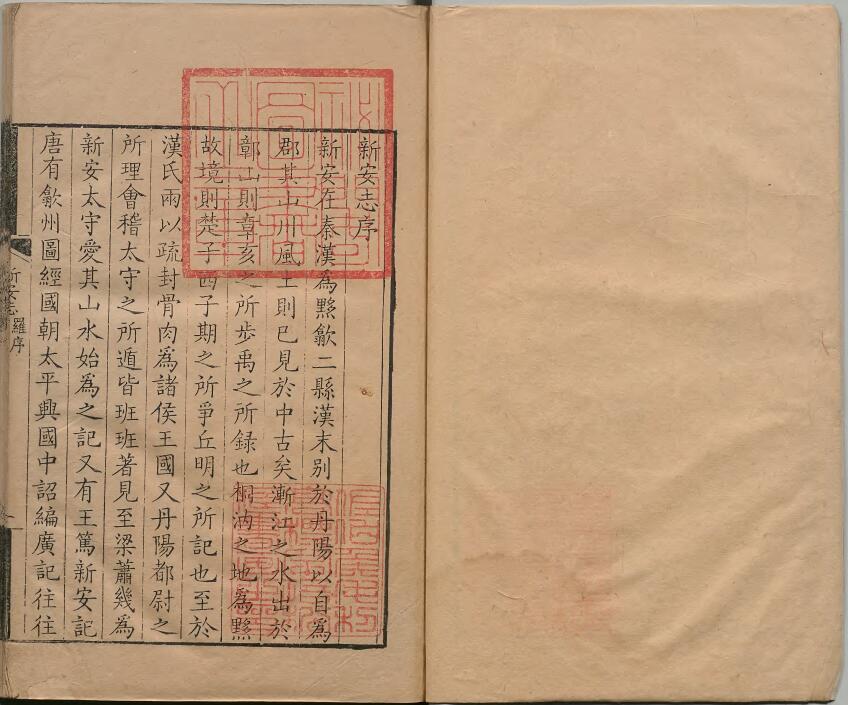 新安志序
新安在秦漢為黟歙二縣漢末別於丹陽以自為
郡其山川風土則已見於中古矣漸江之水出於
鄣山則章亥之所步禹之所録也桐汭之地為黟
故境則楚子西子期之所爭丘明之所記也至於
漢氏兩以疏封骨肉為諸侯王國又丹陽都尉之
所理會稽太守之所遁皆班班著見至梁蕭幾為
新安太守愛其山水始為之記又有王篤新安記
唐有歙州圖經國朝太平興國中詔編廣記往往
新安志 羅序